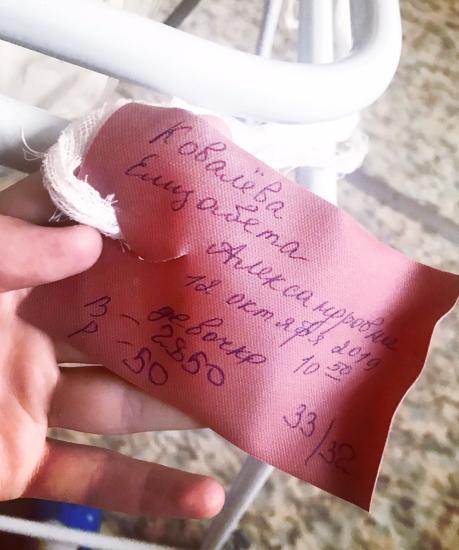 Ковалёва
Елизавета
Александровна
12 октября 2019
девочка 10 50
В – 2850
Р – 50
33/32